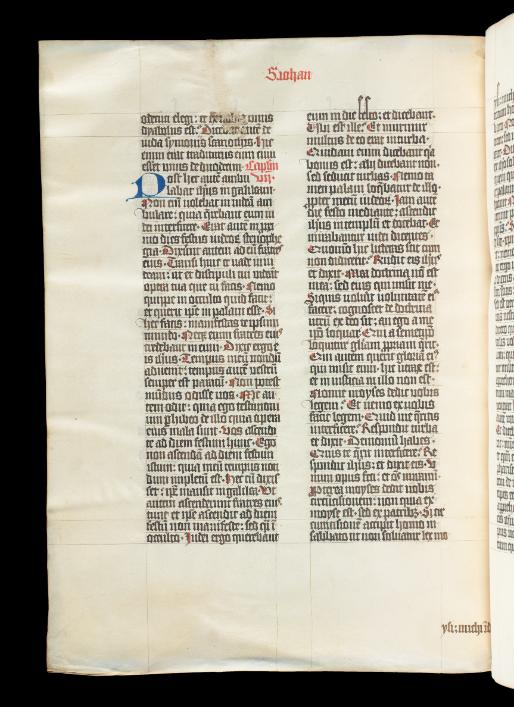 S Iohan
odecim elegi: et ex vobis unus
dyabolus est. Dicebat aute de
iuda symonis scariothis. Hic
enim erat traditurus eum cum
esset unus de duodecim. Caplm
Post hec aute ambu VII.
labat ihus in galileam.
Non eni volebat in iudea am
bulare: quia querebant eum iu
dei interficere. Erat aute in pxi
mo dies festus iudeor
Dixerunt autem ad eu fratres
eius. Transi hinc et vade in iu
deam: ut et discipuli tui videat
opera tua que tu facis. Nemo
quippe in occulto quid facit:
et querit ipe in palam esse. Si
hec facis: manifesta te ipsum
mundo. Neqz enim fratres eius
credebant in eum. Dixit ergo eis
ihus. Tempus meu nondu
advenit: tempus aute vestru
semper est paratu. Non potest
mundus odisse vos. Me au
tem odit: quia ego testimoniu
um phibeo de illo quia opera
eius mala sunt. Vos ascendi
te ad diem festum hunc. Ego
non ascenda ad diem festum
istum: quia meu tempus non
dum impletu est. Hec cu dixis
set: ipe mansit in galilea. Vt
autem ascenderunt fratres eius
tunc et ipe ascendit ad diem
festu non manifeste: sed qi i
occulto. Iudei ergo querebant
eum in die festo: et dicebant.
Vbi est ille. Et murmur
multus de eo erat in turba.
Quidam enim dicebant qa
bonus est: alii dicebant non.
sed seducit turbas. Nemo ta
men palam loqbatur de illo
ppter metu iudeor. Iam aute
die festo mediante: ascendit
ihus in templum et docebat. Et
mirabantur iudei dicentes.
Quomo hic litteras scit cum
non didicerit. Rndit eis ihus
et dixit. Mea doctrina no est
mea: sed eius qui misit me.
Siquis voluit voluntate ei
facere: cognoscet de doctrina
utru ex deo sit: an ego a me
ipo loquar. Qui a semetipo
loquitur gliam ppriam querit.
Qui autem querit gloria ei
qui misit eum. hic verax est:
et iniusticia in illo non est.
Nonne moyses dedit vobis
legem. Et nemo ex vobis
facit legem. Quid me queritis
interficere. Respondit turba
et dixit. Demoniu habes.
Quis te querit interficere. Re
spondit ihus: et dixit eis. V
num opus feci: et oes miramini.
Propterea moyses dedit vobis
circuncisionem: non quia ex
moyse est: sed ex patribz. Si cir
cuncisione accipit homo in
sabbato ut non solvatur lex mo
ysi: michi id